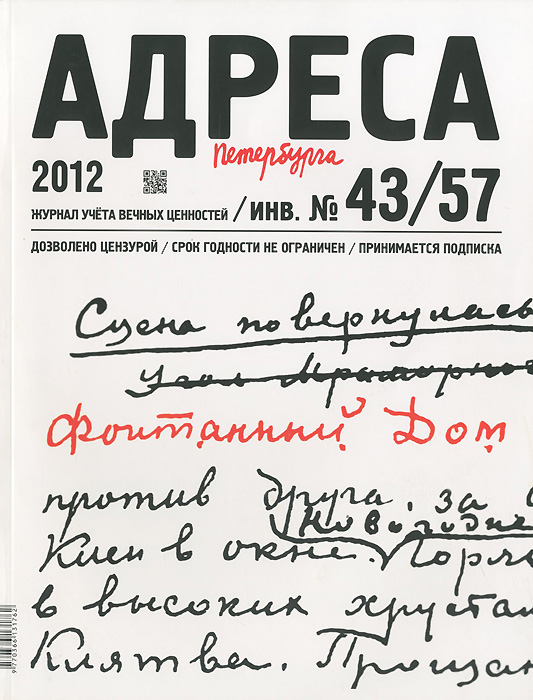 АДРЕСА
Петербурга
2012
ЖУРНАЛ УЧЁТА ВЕЧНЫХ ЦЕННОСТЕЙ / ИНВ. № 43/57
ДОЗВОЛЕНО ЦЕНЗУРОЙ / СРОК ГОДНОСТИ НЕ ОГРАНИЧЕН / ПРИНИМАЕТСЯ ПОДПИСКА
Сцена повернулась
Угол Мраморного
Фонтанный Дом
против друга, за
Новогодн
Клен в окне.
в высоких хрустал
Клятва. Прощан
9770366133762